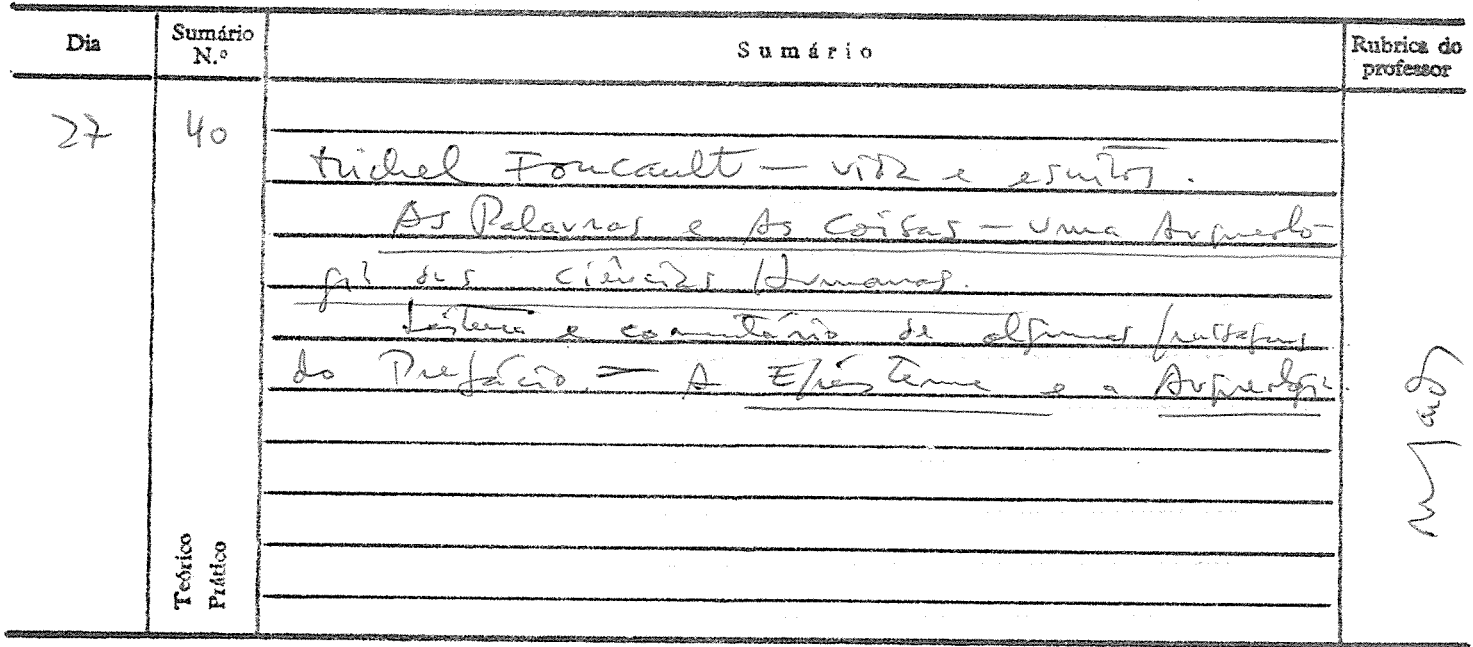 Dia Sumário N.º Sumário Rubrica do professor
27 40
Michel Foucault — vida e escritos.
As Palavras e As Coisas — Uma Arqueolo-
gia das Ciências Humanas.
Leitura e comentário de algumas passagens
do Prefácio. — A Epistéme e a Arqueologia.
Teórico
Prático